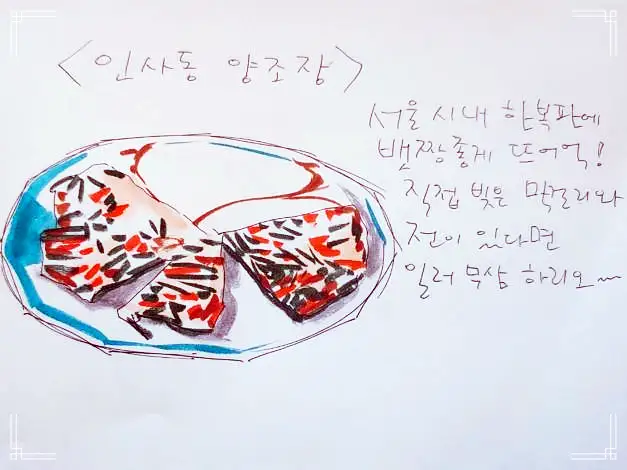 <인사동 양조장>
서울 시내 한복판에
뱃짱좋게 뜨어억!
직접 빚은 막걸리와
전이 있다면
일러 무삼 하리오~